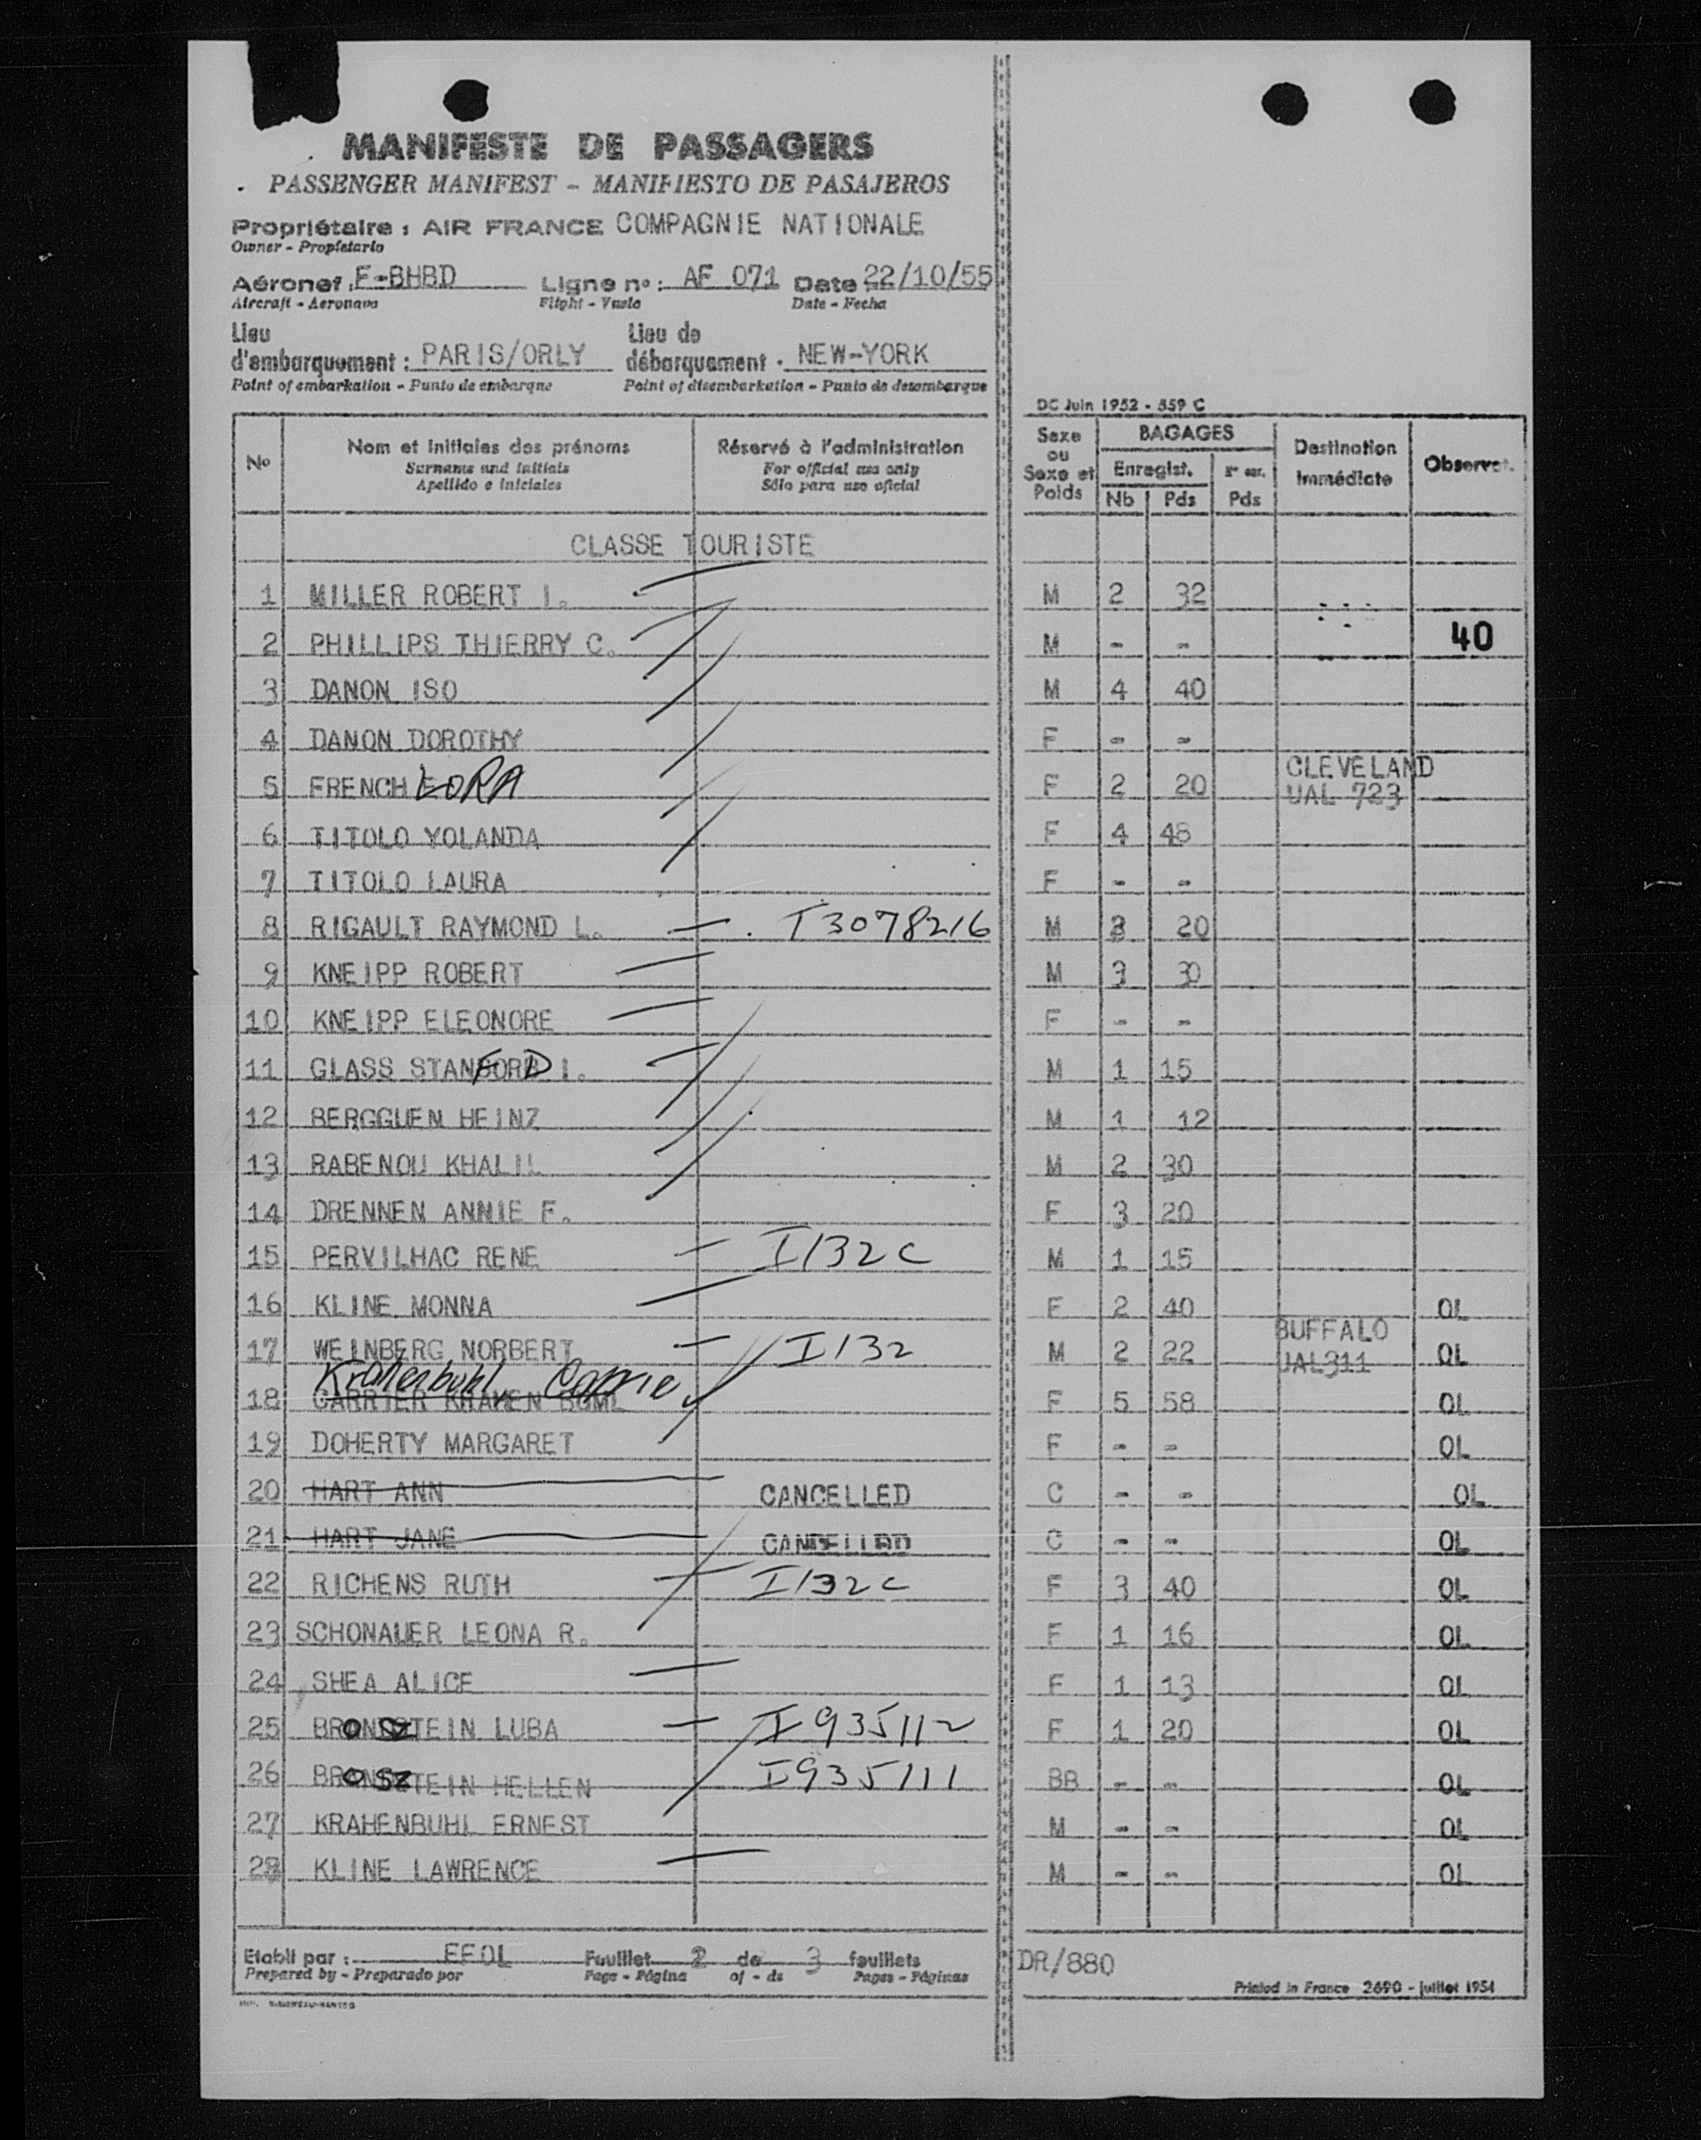 MANIFESTE DE PASSAGERS
PASSENGER MANIFEST - MANIFIESTO DE PASAJEROS
Propriétaire : AIR FRANCE COMPAGNIE NATIONALE
Owner - Propietario
Aéronef : F-BHBD Ligne nº : AF 071 Date 22/10/55
Aircraft - Aeronave Flight - Vuelo Date - Fecha
Lieu d'embarquement : PARIS/ORLY Lieu de débarquement : NEW-YORK
Point of embarkation - Punto de embarque Point of disembarkation - Punto de desembarque
DC Juin 1952 - 559 C
Nº Nom et initiales des prénoms Réservé à l'administration Sexe ou Sexe et Poids BAGAGES Destination immédiate Observat.
Surname and initials For official use only Enregist.
Apellido e iniciales Sólo para uso oficial Nb Pds Pds
CLASSE TOURISTE
1 MILLER ROBERT I. M 2 32
2 PHILLIPS THIERRY C. M - - 40
3 DANON ISO M 4 40
4 DANON DOROTHY F - -
5 FRENCH LORA F 2 20 CLEVELAND UAL 723
6 TITOLO YOLANDA F 4 48
7 TITOLO LAURA F - -
8 RIGAULT RAYMOND L. I3078216 M 3 20
9 KNEIPP ROBERT M 3 30
10 KNEIPP ELEONORE F - -
11 GLASS STANFORD I. M 1 15
12 BERGGUEN HEINZ M 1 12
13 RABENOU KHALIL M 2 30
14 DRENNEN ANNIE F. F 3 20
15 PERVILHAC RENE I132C M 1 15
16 KLINE MONNA F 2 40 OL
17 WEINBERG NORBERT I132 M 2 22 BUFFALO UAL311 OL
Krahenbuhl Carrie
18 CARRIER KRAHEN BUML F 5 58 OL
19 DOHERTY MARGARET F - - OL
20 HART ANN CANCELLED C - - OL
21 HART JANE CANCELLED C - - OL
22 RICHENS RUTH I132C F 3 40 OL
23 SCHONAUER LEONA R. F 1 16 OL
24 SHEA ALICE F 1 13 OL
25 BRONSZTEIN LUBA I935112 F 1 20 OL
26 BRONSZTEIN HELLEN I935111 BB - - OL
27 KRAHENBUHL ERNEST M - - OL
28 KLINE LAWRENCE M - - OL
Etabli par : EFOL Feuillet 2 de 3 feuillets DR/880
Prepared by - Preparado por Page - Página of - de Pages - Páginas
Printed in France 2690 - juillet 1954